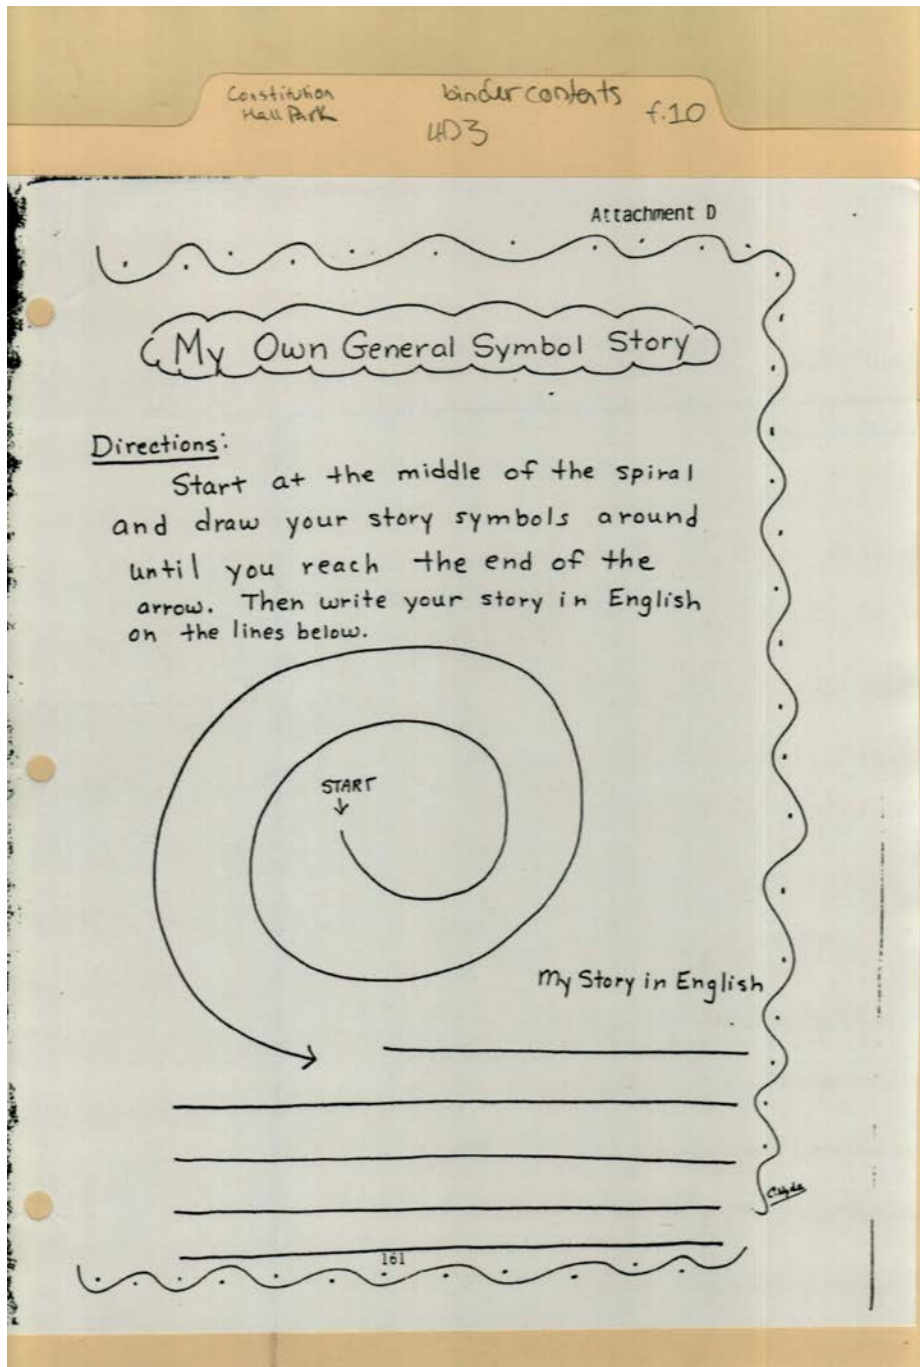 Constitution
Hall Park
binder contents
4D3
f.10
Attachment D
My Own General Symbol Story
Directions:
Start at the middle of the spiral
and draw your story symbols around
until you reach the end of the
arrow. Then write your story in English
on the lines below.
START
My Story in English
161